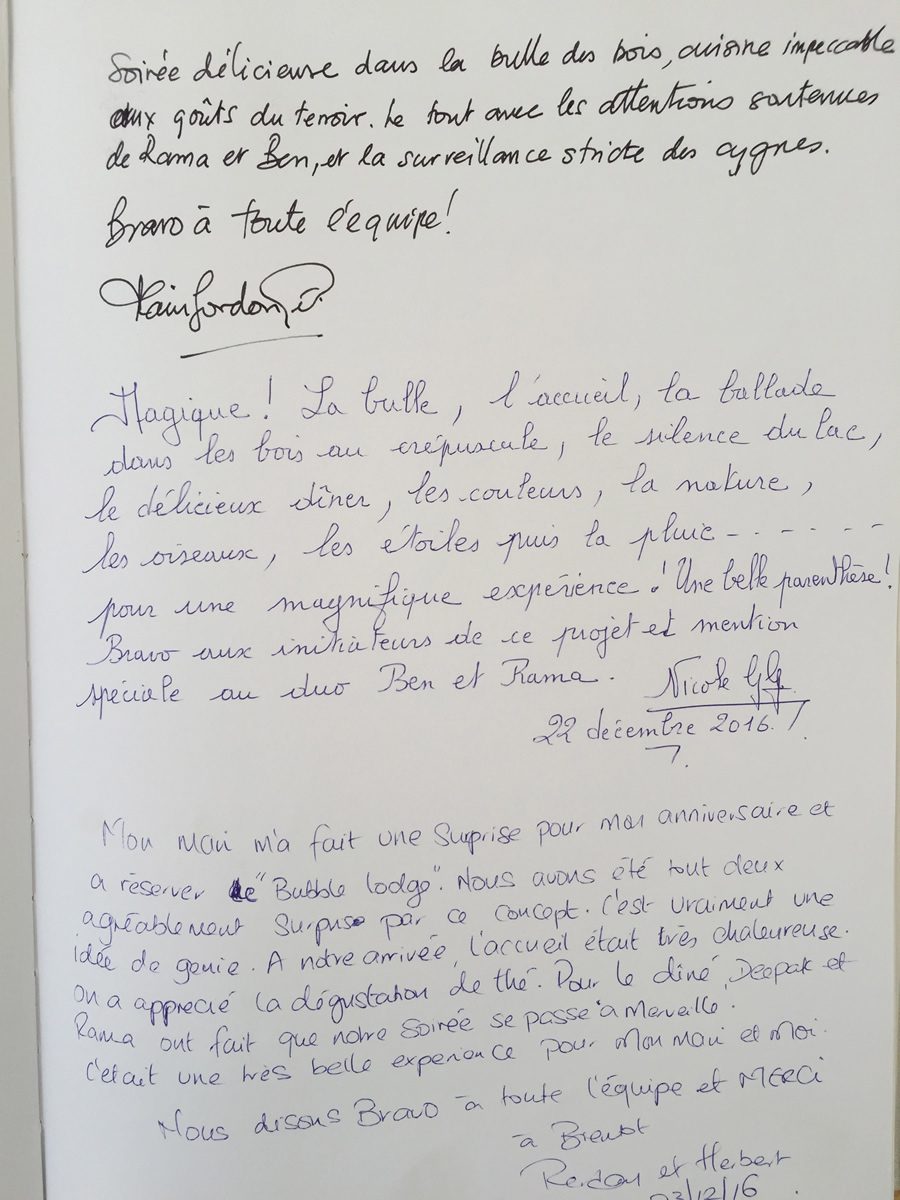 Soirée délicieuse dans la bulle des bois, cuisine impeccable
aux goûts du terroir. Le tout avec les attentions soutenues
de Rama et Ben, et la surveillance stricte des cygnes.
Bravo à toute l'équipe!
Magique! La bulle, l'accueil, la ballade
dans les bois au crépuscule, le silence du lac,
le délicieux dîner, les couleurs, la nature,
les oiseaux, les étoiles puis la pluie - - - - - - -
pour une magnifique expérience! Une belle parenthèse!
Bravo aux initiateurs de ce projet et mention
spéciale au duo Ben et Rama. Nicole
22 décembre 2016.
Mon mari m'a fait une surprise pour mon anniversaire et
a réserver le "Bubble lodge". Nous avons été tout deux
agréablement surpris par ce concept. C'est vraiment une
idée de genie. A notre arrivée, l'accueil était très chaleureuse.
On a apprecié la dégustation de thé. Pour le dîné, Deepak et
Rama ont fait que notre soirée se passe à merveille.
C'était une très belle experience pour mon mari et moi.
Nous disons Bravo à toute l'équipe et MERCI
à
et Herbert
/12/16